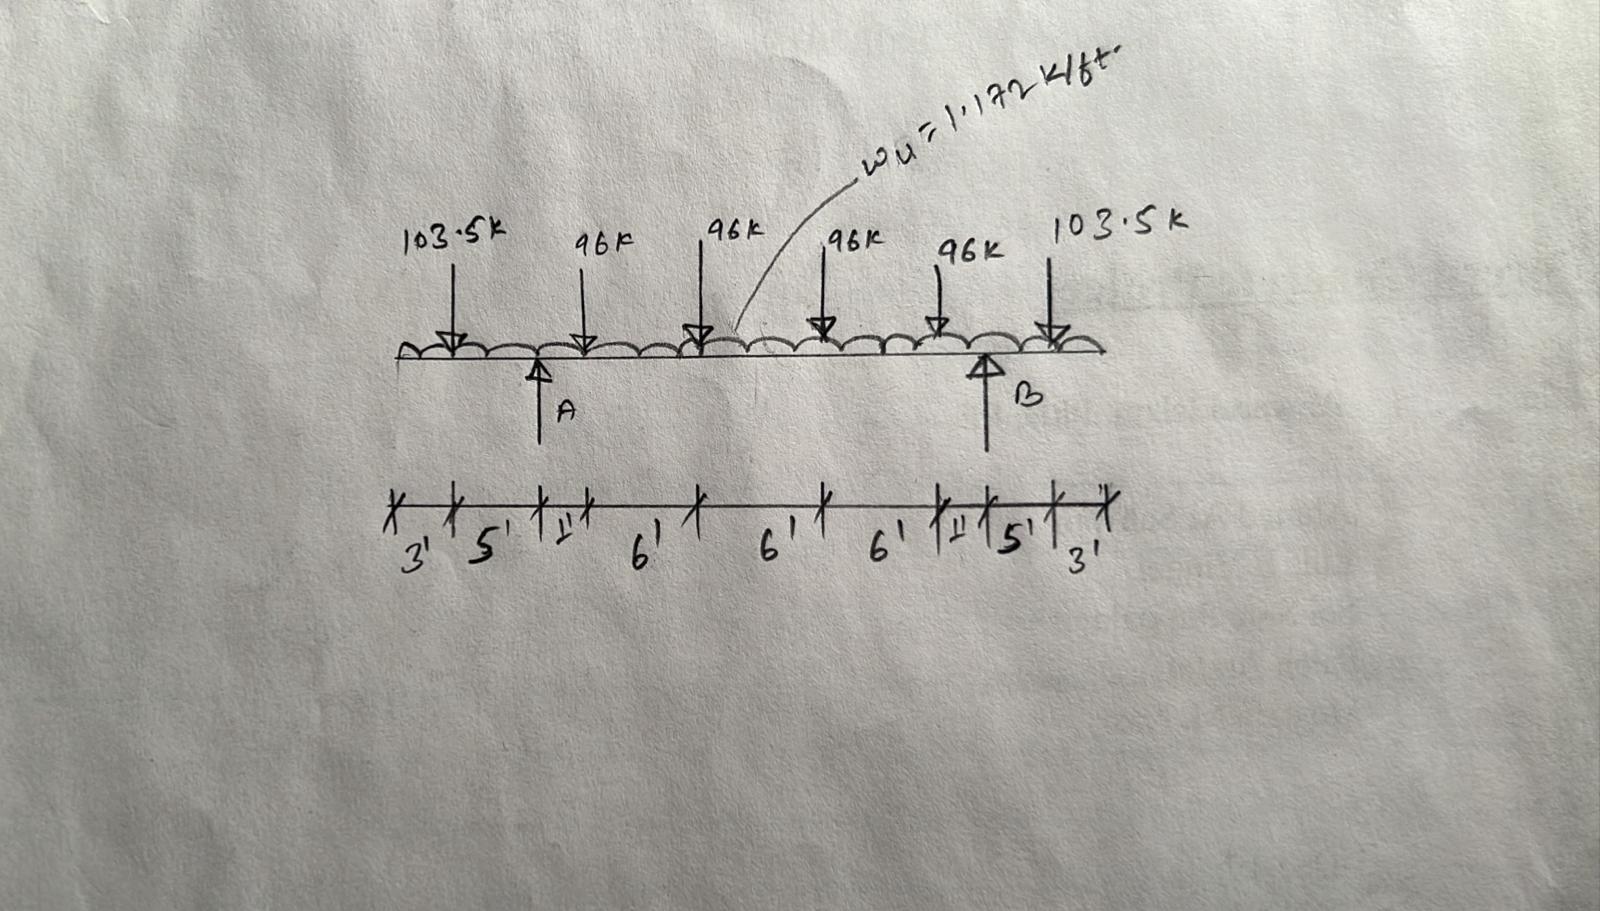 wu = 1.172 k/ft.
103.5k 96k 96k 96k 96k 103.5k
A B
3' 5' 1' 6' 6' 6' 1' 5' 3'